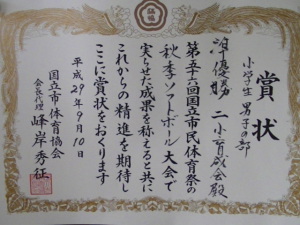 賞状
小学生 男子の部
準優勝 二小育成会殿
第五十六回国立市民体育祭の
秋季ソフトボール大会で
実らせた成果を称えると共に
これからの精進を期待し
ここに賞状をおくります
平成29年9月10日
国立市体育協会
会長代理 峰岸秀征